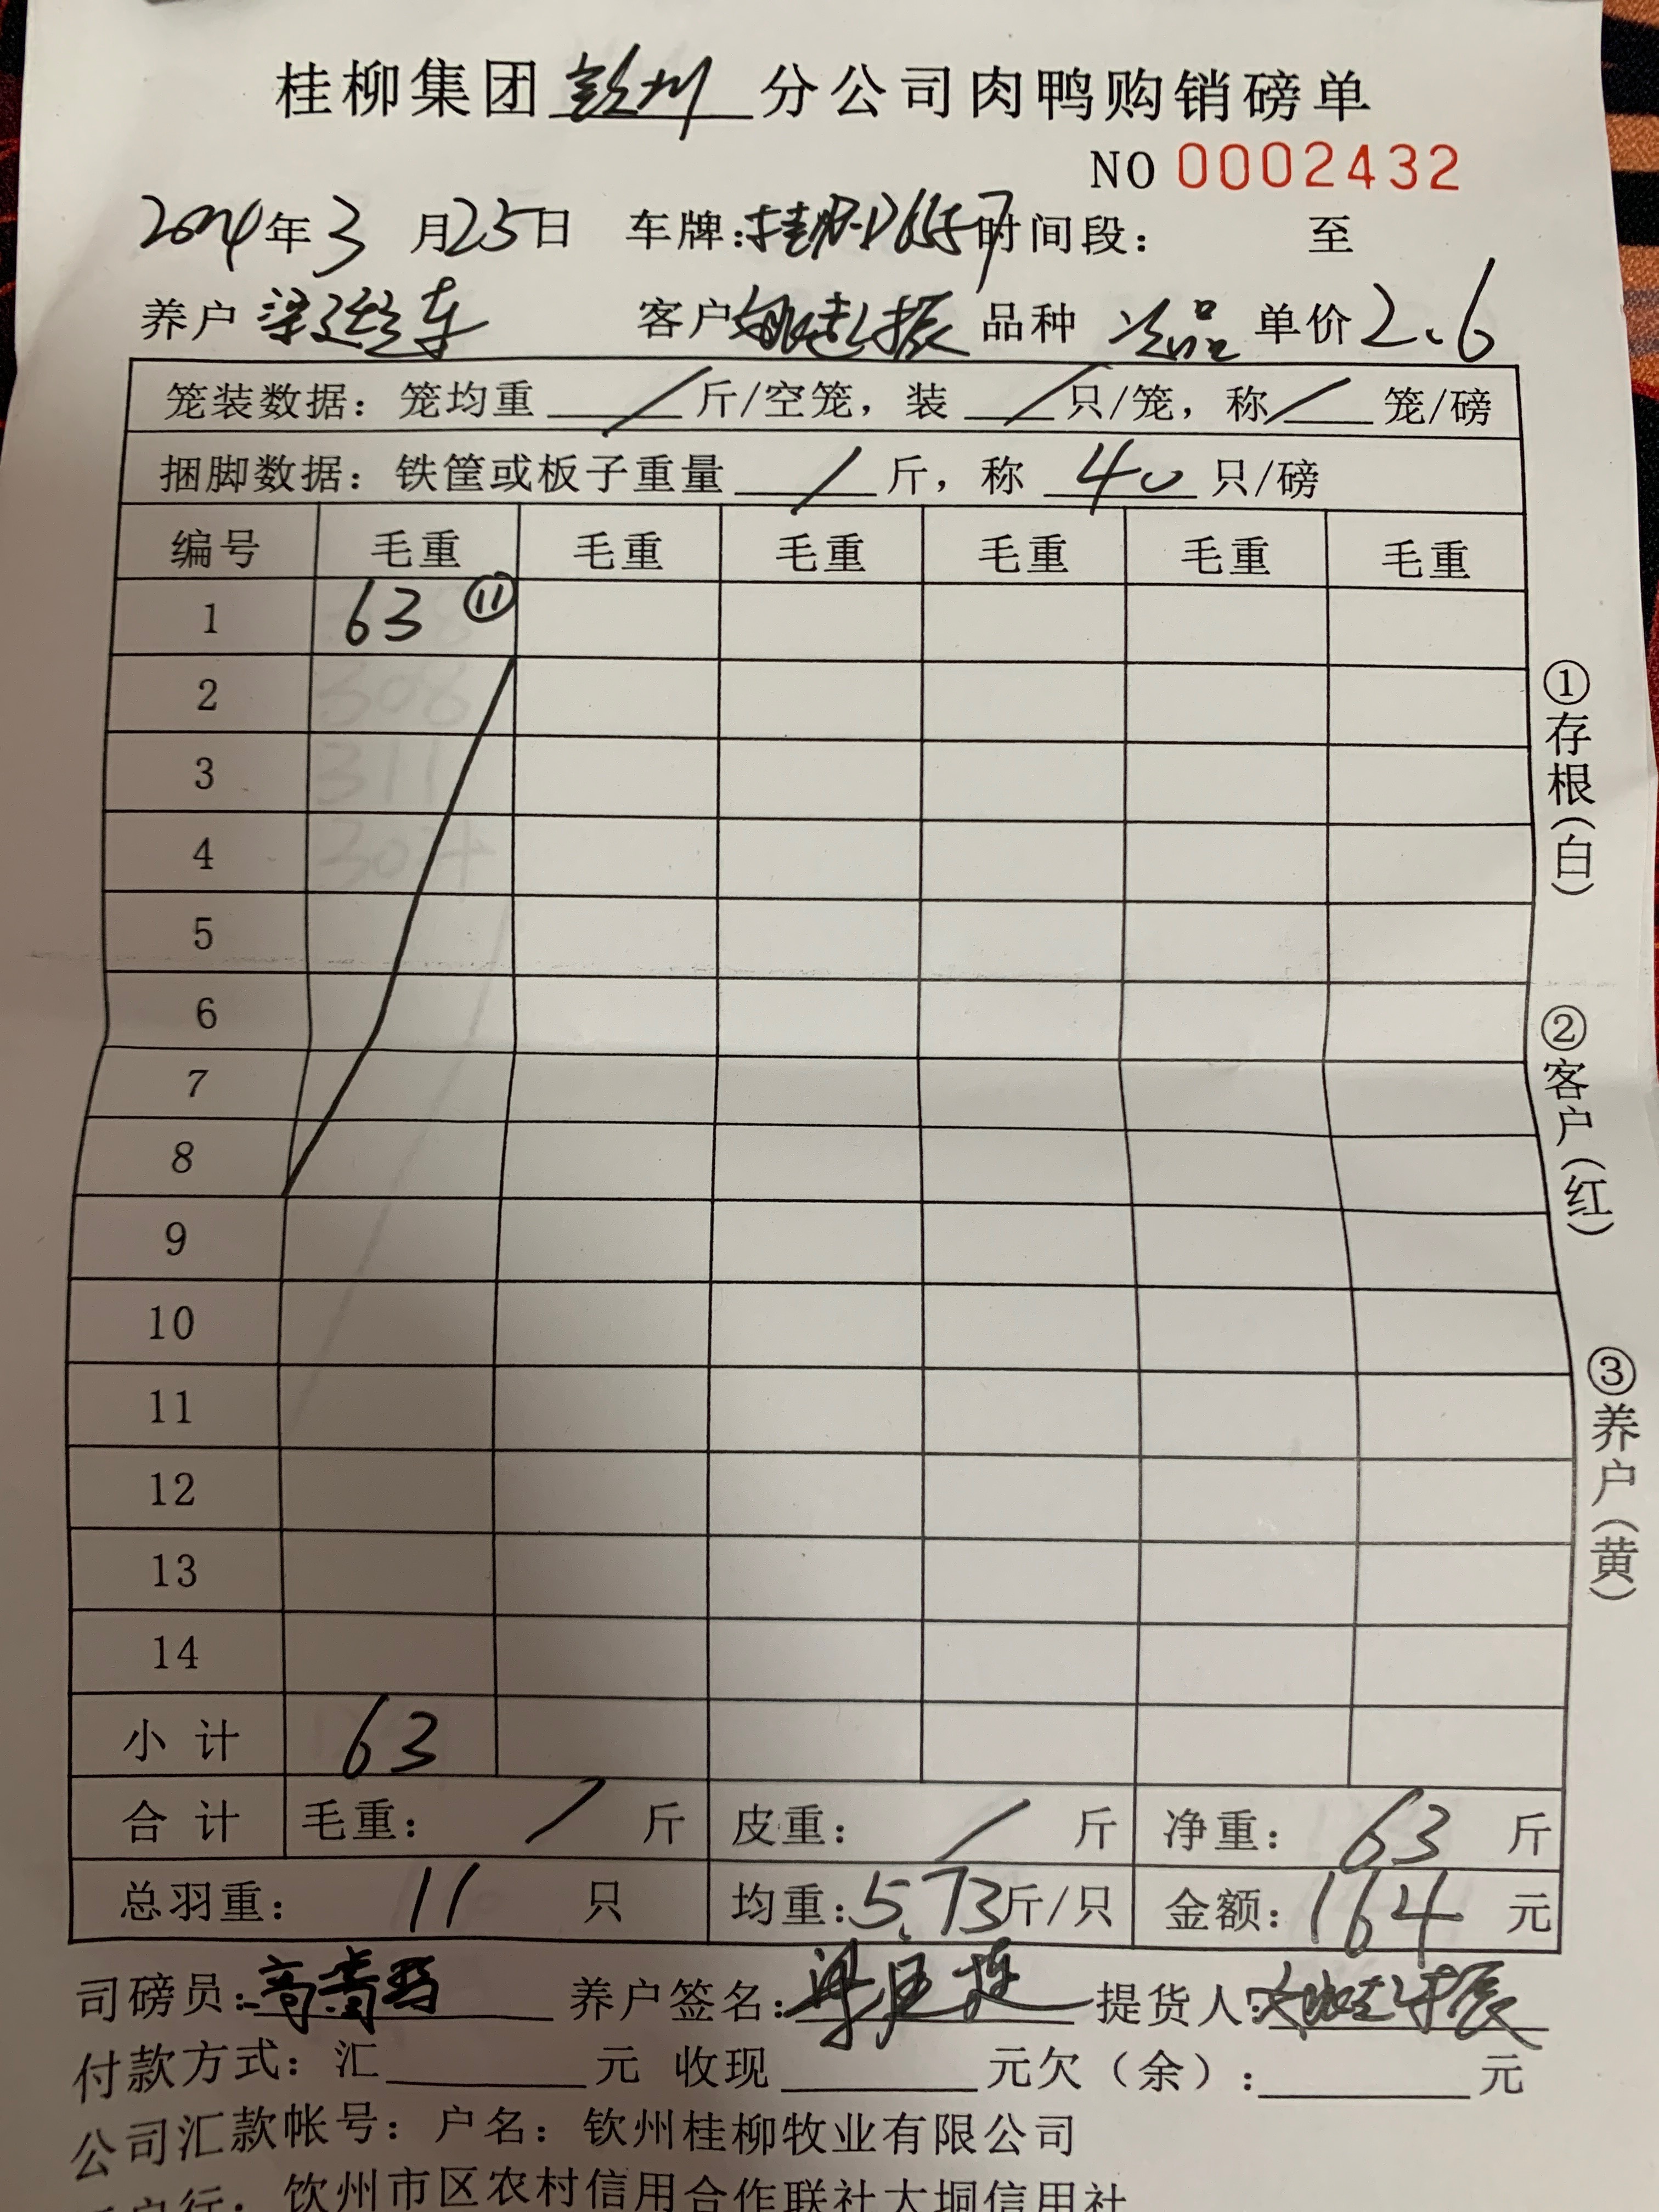 桂柳集团 钦州 分公司肉鸭购销磅单
NO 0002432
2024年3月25日 车牌: 时间段: 至
养户 梁 客户 振 品种 次品 单价 2.6
笼装数据: 笼均重 / 斤/空笼, 装 / 只/笼, 称 / 笼/磅
捆脚数据: 铁筐或板子重量 / 斤, 称 40 只/磅
编号 毛重 毛重 毛重 毛重 毛重 毛重
1 63 ⑪
2 308
3 311
4 304
5
6
7
8
9
10
11
12
13
14
小计 63
合计 毛重: / 斤 皮重: / 斤 净重: 63 斤
总羽重: 11 只 均重: 5.73斤/只 金额: 164 元
司磅员: 养户签名: 梁 提货人: 振
付款方式: 汇 元 收现 元欠(余): 元
公司汇款帐号: 户名: 钦州桂柳牧业有限公司
钦州市区农村信用合作联社大垌信用社
①存根(白)
②客户(红)
③养户(黄)